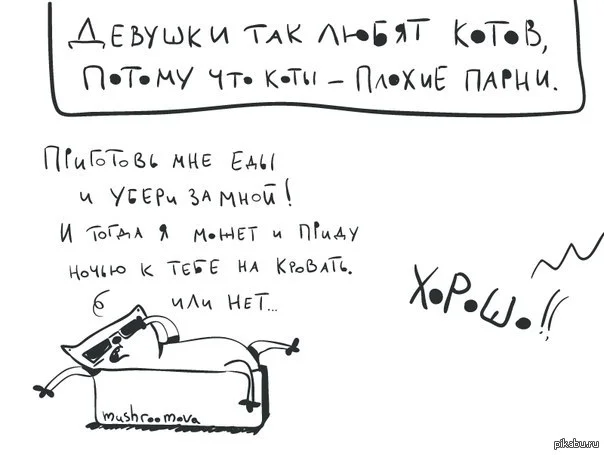 Девушки так любят котов,
потому что коты – плохие парни.
Приготовь мне еды
и убери за мной!
И тогда я может и приду
ночью к тебе на кровать.
или нет...
Хорошо!!
mushroomova
pikabu.ru